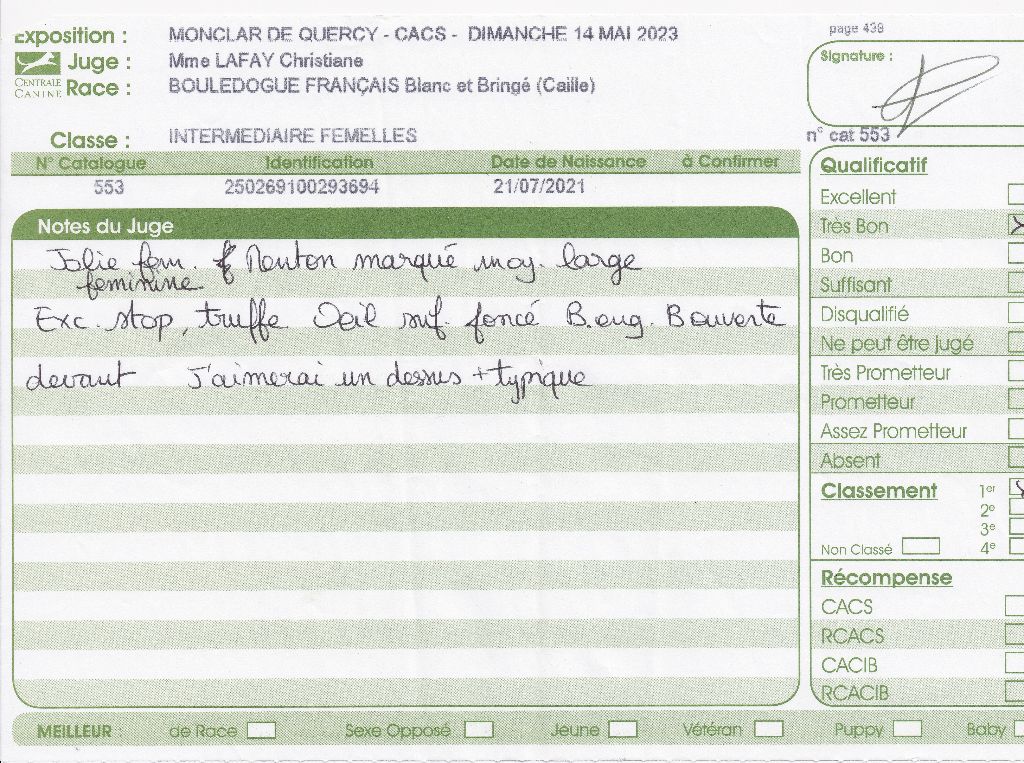 Exposition : MONCLAR DE QUERCY - CACS - DIMANCHE 14 MAI 2023
page 439
CENTRALE CANINE
Juge : Mme LAFAY Christiane
Race : BOULEDOGUE FRANÇAIS Blanc et Bringé (Caille)
Signature :
Classe : INTERMEDIAIRE FEMELLES
n° cat 553
N° Catalogue Identification Date de Naissance à Confirmer
553 250269100293694 21/07/2021
Notes du Juge
Jolie fem. Menton marqué moy. large
feminine
Exc. stop, truffe Oeil suf. foncé B.ang. B ouverte
devant J'aimerai un dessus + typique
Qualificatif
Excellent
Très Bon
Bon
Suffisant
Disqualifié
Ne peut être jugé
Très Prometteur
Prometteur
Assez Prometteur
Absent
Classement 1er
2e
3e
Non Classé 4e
Récompense
CACS
RCACS
CACIB
RCACIB
MEILLEUR : de Race Sexe Opposé Jeune Vétéran Puppy Baby